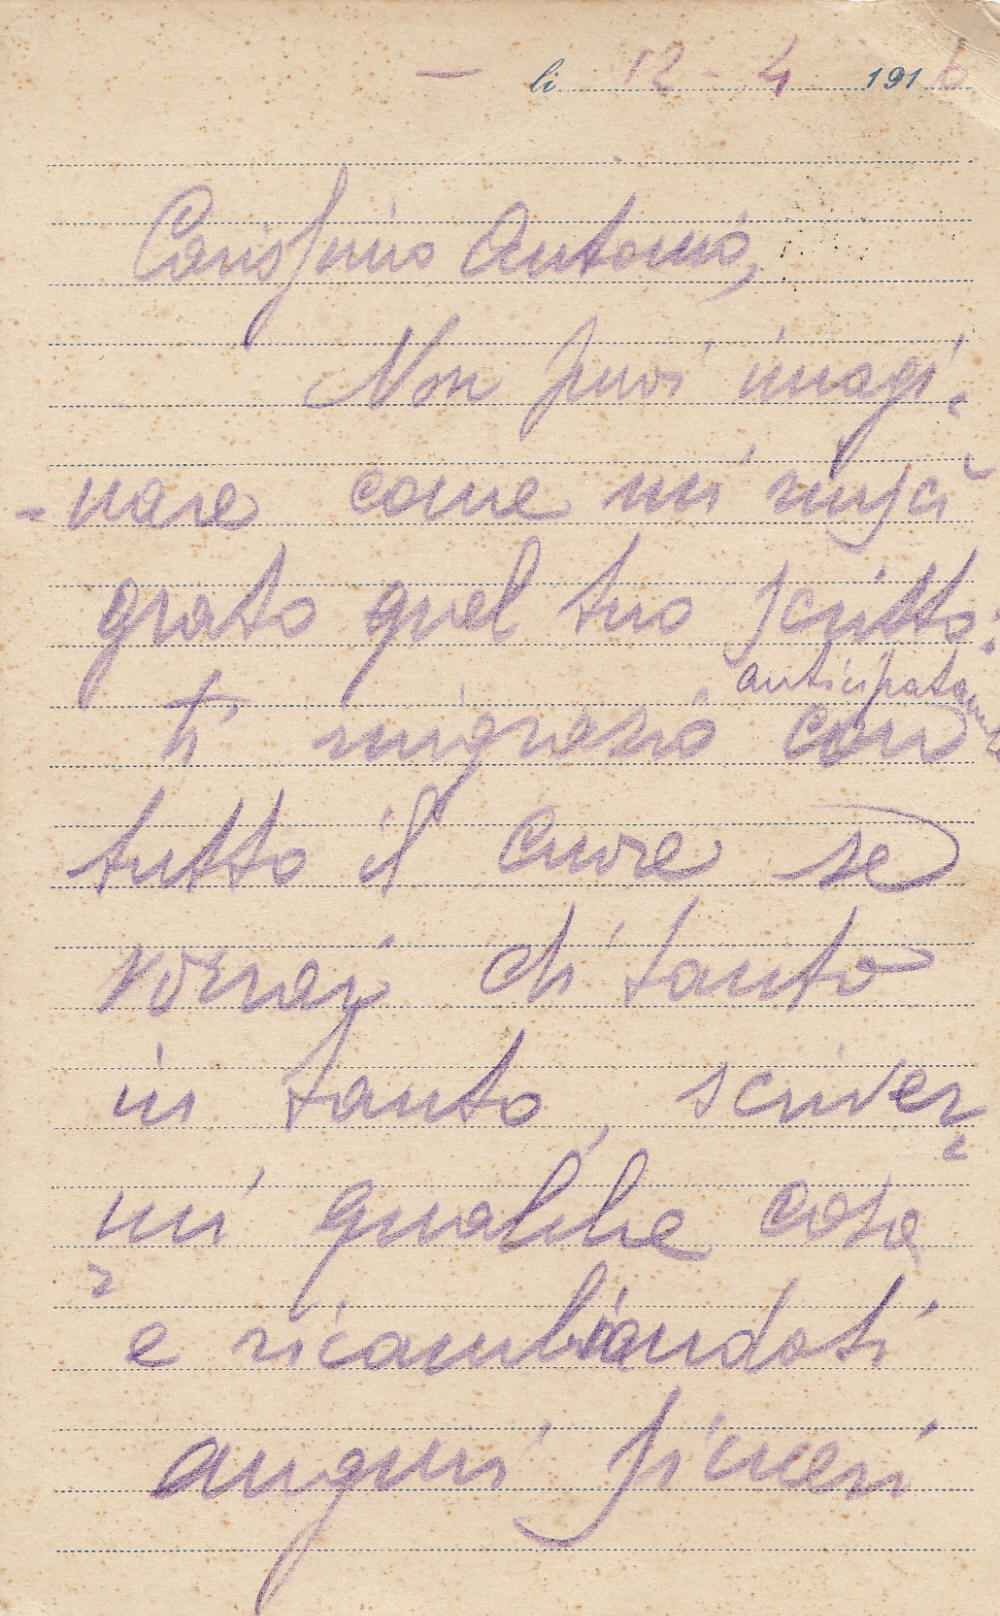 — li 12 - 4 1916
Carissimo Antonio,
Non puoi imagi-
-nare come mi riuscì
grato quel tuo scritto:
anticipatamente
ti ringrazio con
tutto il cuore se
vorrai di tanto
in tanto, scriver-
-mi qualche cosa
e ricambiandoti
auguri sinceri